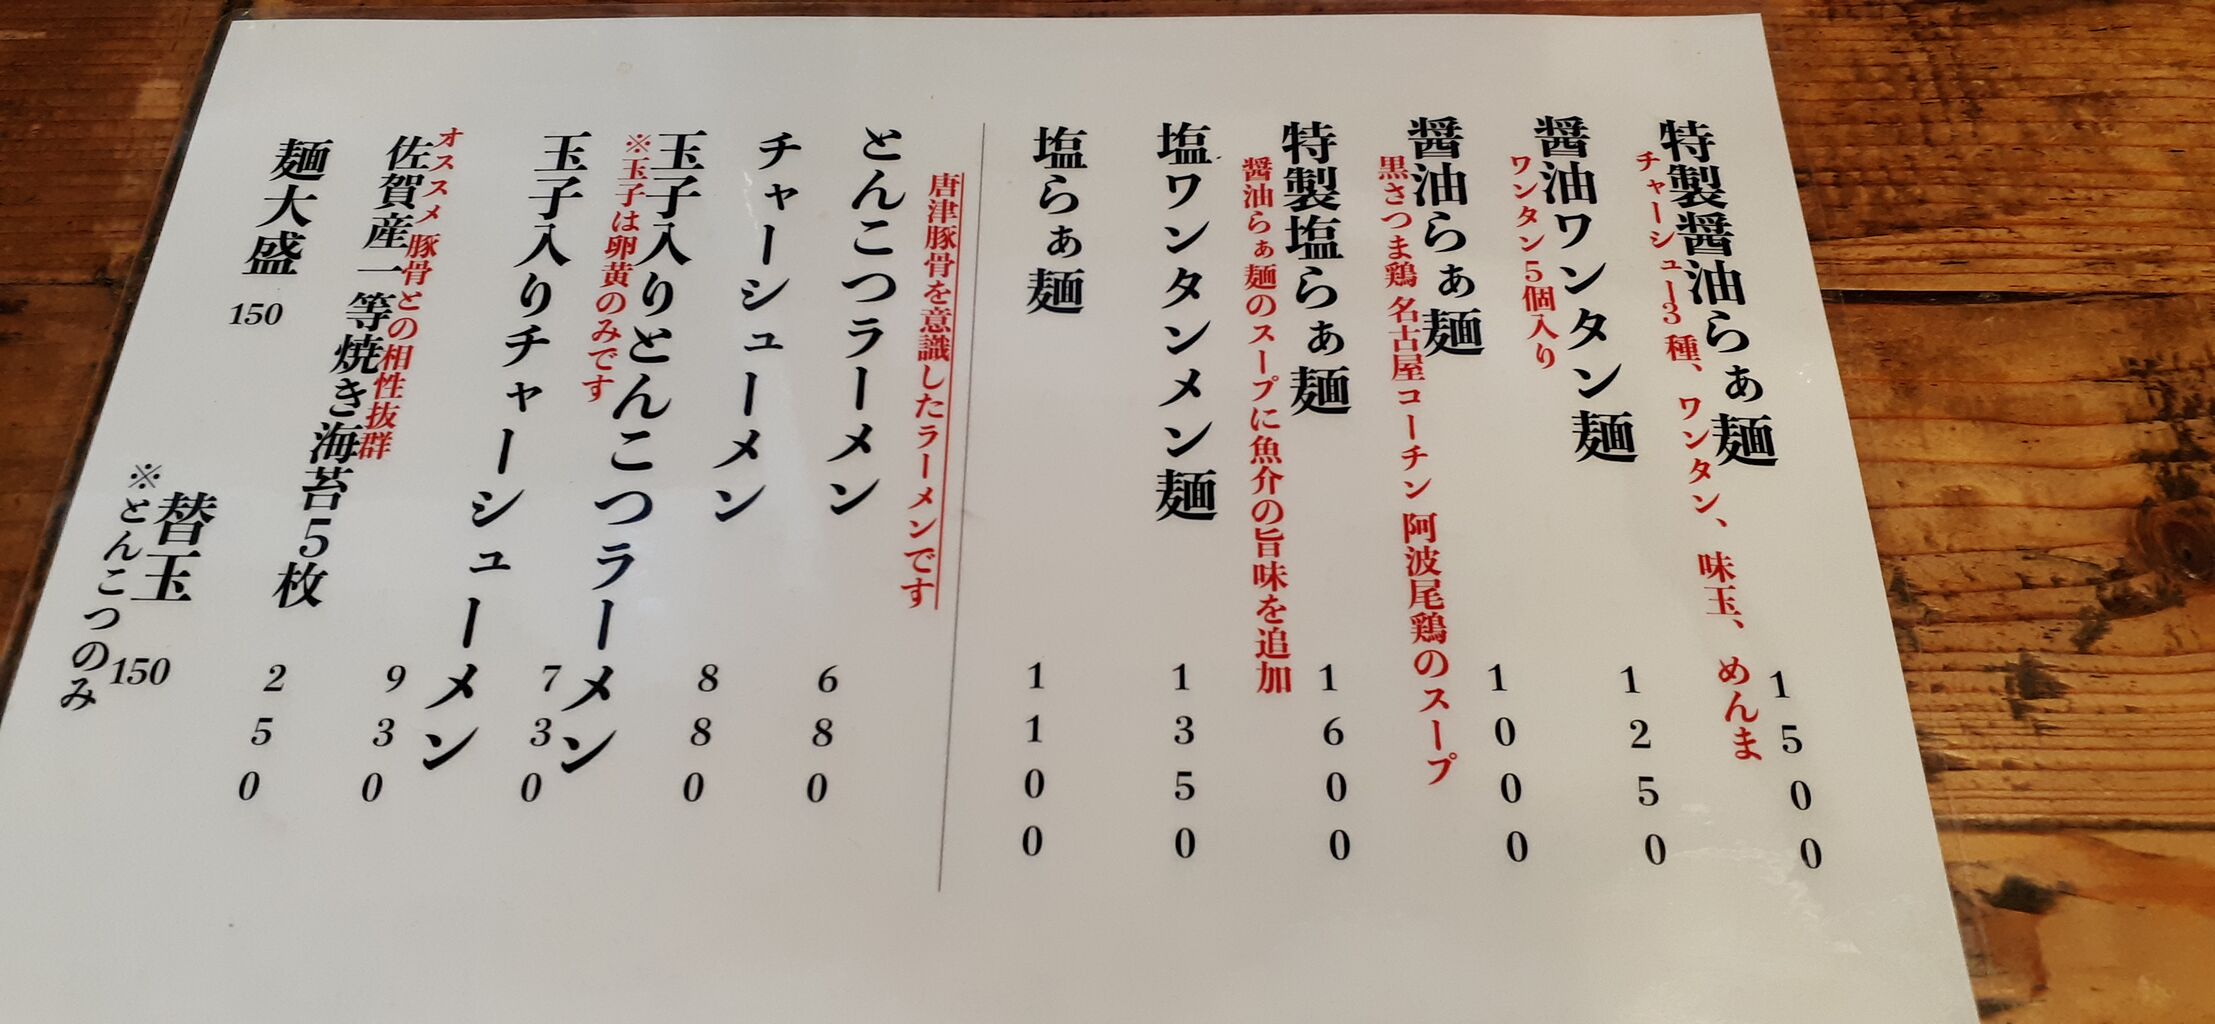 特製醤油らぁ麺 1500
チャーシュー3種、ワンタン、味玉、めんま
醤油ワンタン麺 1250
ワンタン5個入り
醤油らぁ麺 1000
黒さつま鶏 名古屋コーチン 阿波尾鶏のスープ
特製塩らぁ麺 1600
醤油らぁ麺のスープに魚介の旨味を追加
塩ワンタンメン麺 1350
塩らぁ麺 1100
唐津豚骨を意識したラーメンです
とんこつラーメン 680
チャーシューメン 880
玉子入りとんこつラーメン 730
※玉子は卵黄のみです
玉子入りチャーシューメン 930
オススメ 豚骨との相性抜群
佐賀産一等焼き海苔5枚 250
麺大盛 150
替玉 150
※とんこつのみ